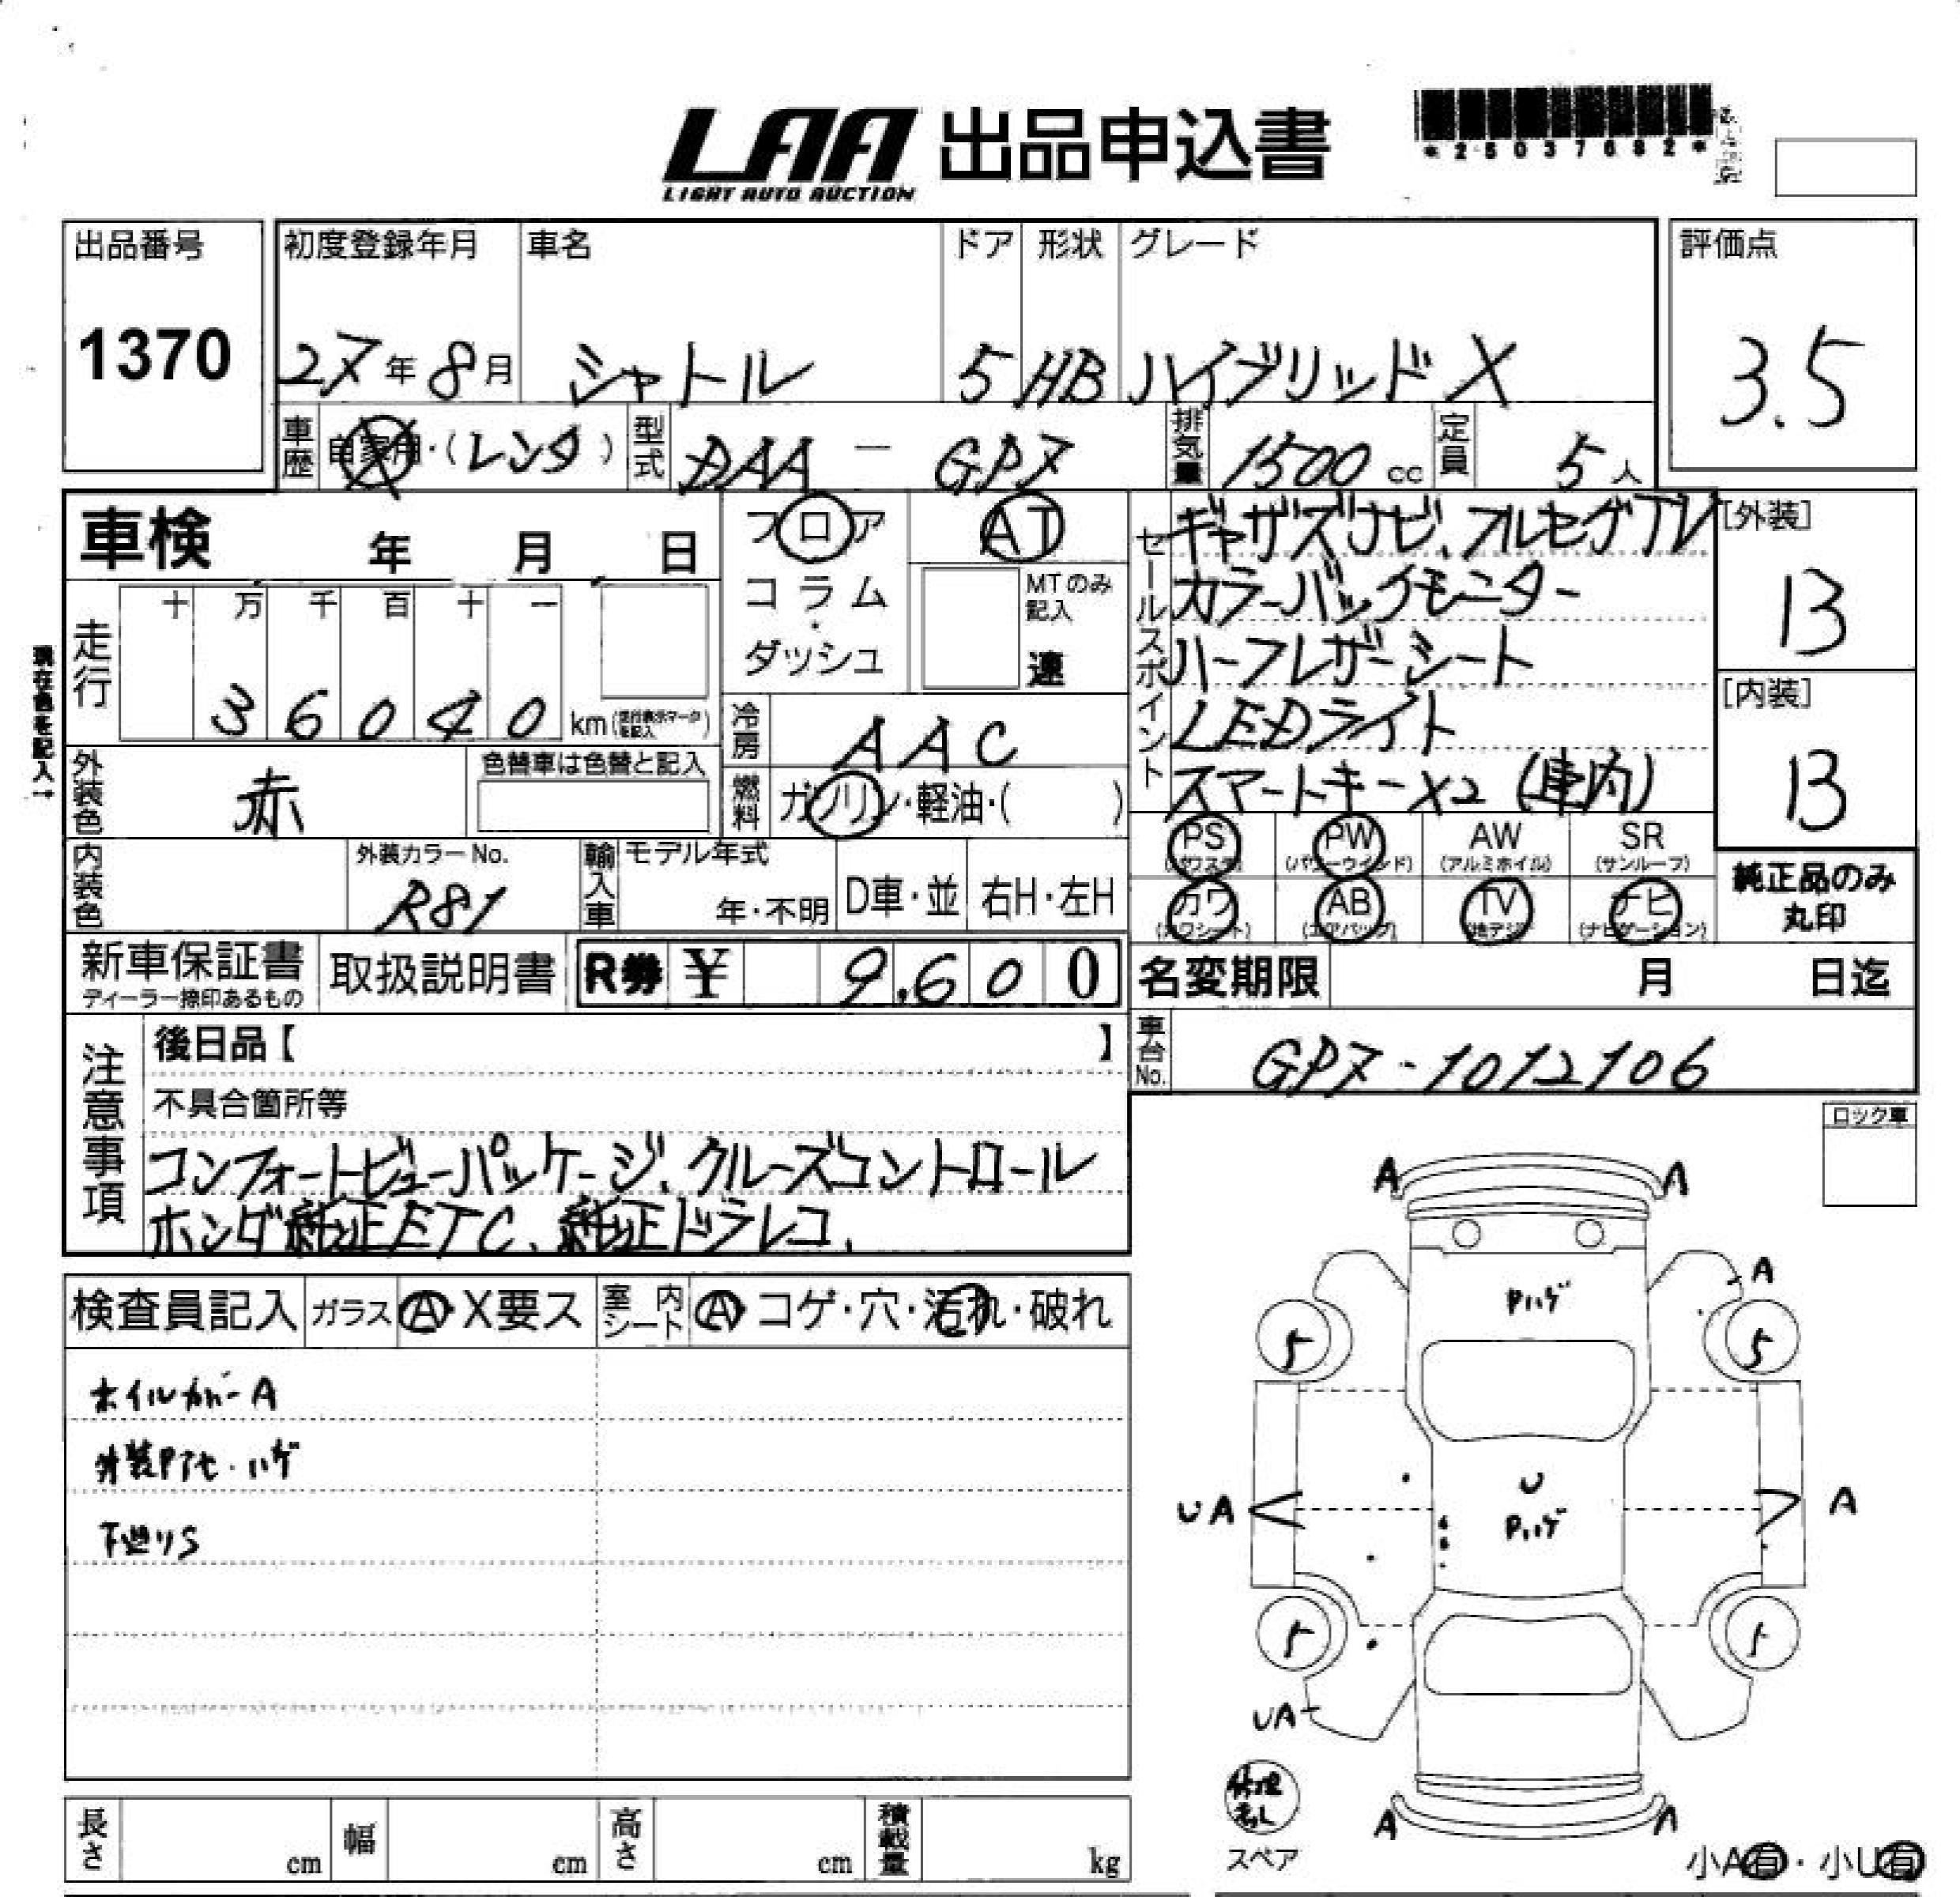 LAA 出品申込書
LIGHT AUTO AUCTION
*25037682*
出品番号
1370
初度登録年月
27年8月
車名
シャトル
ドア
5
形状
HB
グレード
ハイブリッド X
評価点
3.5
車歴
自家用・(レンタ)
型式
DAA - GP7
排気量
1500 cc
定員
5人
車検 年 月 日
フロア
コラム
・
ダッシュ
AT
MTのみ
記入
速
走行
十 万 千 百 十 一
36040 km(走行表示マークを記入)
現在色を記入→
冷房
AAC
外装色
赤
色替車は色替と記入
燃料
ガソリン・軽油・( )
内装色
外装カラーNo.
R81
輸入車
モデル年式
年・不明
D車・並
右H・左H
セールスポイント
ギャザズナビ、フルセグTV
カラーバックモニター
ハーフレザーシート
LEDライト
スマートキーX2 (車内)
[外装]
13
[内装]
13
PS
(パワステ)
PW
(パワーウインド)
AW
(アルミホイル)
SR
(サンルーフ)
カワ
(カワシート)
AB
(エアバッグ)
TV
(地デジ)
ナビ
(ナビゲーション)
純正品のみ
丸印
新車保証書
ディーラー捺印あるもの
取扱説明書
R券 ¥ 9,600
名変期限 月 日迄
車台No.
GP7-1012106
注意事項
後日品【 】
不具合箇所等
コンフォートビューパッケージ、クルーズコントロール
ホンダ純正ETC、純正ドラレコ、
ロック車
検査員記入
ガラス
A・X要ス
室内
シート
A コゲ・穴・汚れ・破れ
ホイルカバーA
外装Pアセ・ハゲ
下廻りS
A A
A
Pハゲ
5 5
U
Pハゲ
UA A
5 5
UA
A A
修理剤無し
スペア
小A有・小U有
長さ cm
幅 cm
高さ cm
積載量 kg